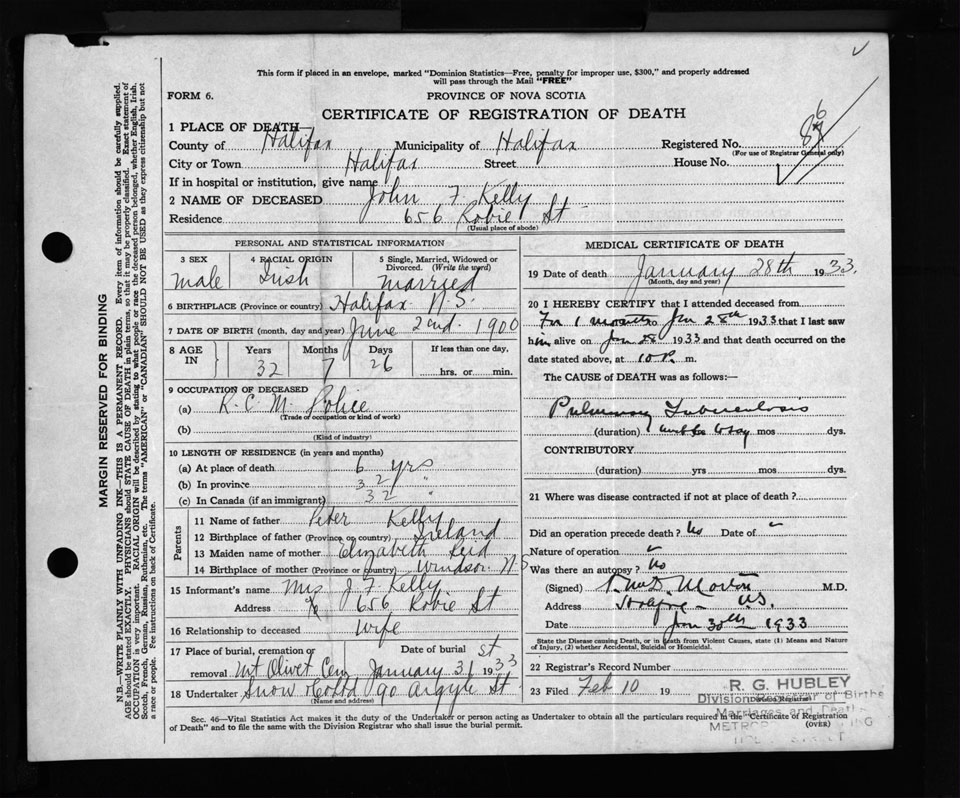 This form if placed in an envelope, marked "Dominion Statistics—Free, penalty for improper use, $300," and properly addressed
will pass through the Mail "FREE"
FORM 6.
PROVINCE OF NOVA SCOTIA
CERTIFICATE OF REGISTRATION OF DEATH
1 PLACE OF DEATH—
County of Halifax Municipality of Halifax Registered No.
(For use of Registrar General only)
City or Town Halifax Street House No.
If in hospital or institution, give name
2 NAME OF DECEASED John F. Kelly
Residence 656 Robie St
(Usual place of abode)
PERSONAL AND STATISTICAL INFORMATION
3 SEX 4 RACIAL ORIGIN 5 Single, Married, Widowed or
Divorced. (Write the word)
Male Irish Married
6 BIRTHPLACE (Province or country) Halifax N.S.
7 DATE OF BIRTH (month, day and year) June 2nd. 1900
8 AGE IN Years Months Days If less than one day,
32 7 26 hrs. or min.
9 OCCUPATION OF DECEASED
(a) R.C.M. Police
(Trade of occupation or kind of work)
(b)
(Kind of industry)
10 LENGTH OF RESIDENCE (in years and months)
(a) At place of death 6 yrs
(b) In province 32 "
(c) In Canada (if an immigrant) 32 "
Parents
11 Name of father Peter Kelly
12 Birthplace of father (Province or country) Ireland
13 Maiden name of mother Elizabeth Reid
14 Birthplace of mother (Province or country) Windsor N S
15 Informant's name Mrs J. F. Kelly
Address 656 Robie St
16 Relationship to deceased Wife
17 Place of burial, cremation or removal Date of burial
Mt Olivet Cem January 31st 1933
18 Undertaker Snow & Co Ltd 90 Argyle St
(Name and address)
MEDICAL CERTIFICATE OF DEATH
19 Date of death January 28th 1933.
(Month, day and year)
20 I HEREBY CERTIFY that I attended deceased from
For 1 month to Jan 28th 1933 that I last saw
him alive on Jan 28 1933 and that death occurred on the
date stated above, at 10 P. m.
The CAUSE of DEATH was as follows:
Pulmonary Tuberculosis
(duration) mos dys.
CONTRIBUTORY
(duration) yrs mos dys.
21 Where was disease contracted if not at place of death?
Did an operation precede death? No Date of
Nature of operation
Was there an autopsy? No
(Signed) Morton M.D.
Address Halifax N.S.
Date Jan 30th 1933
State the Disease causing Death, or in Death from Violent Causes, state (1) Means and Nature
of Injury, (2) whether Accidental, Suicidal or Homicidal.
22 Registrar's Record Number
23 Filed Feb 10 19
(Division Registrar)
R. G. HUBLEY
Division Registrar of Births
Marriages and Deaths
Sec. 46—Vital Statistics Act makes it the duty of the Undertaker or person acting as Undertaker to obtain all the particulars required in the "Certificate of Registration
of Death" and to file the same with the Division Registrar who shall issue the burial permit. (OVER)
MARGIN RESERVED FOR BINDING
N.B.—WRITE PLAINLY WITH UNFADING INK—THIS IS A PERMANENT RECORD. Every item of information should be carefully supplied.
AGE should be stated EXACTLY. PHYSICIANS should STATE CAUSE OF DEATH in plain terms, so that it may be properly classified. Exact statement of
OCCUPATION is very important. RACIAL ORIGIN will be described by stating to what people or race the deceased person belonged, whether English, Irish,
Scotch, French, German, Russian, Ruthenian, etc. The terms "AMERICAN" or "CANADIAN" SHOULD NOT BE USED as they express citizenship but not
a race or people. See instructions on back of Certificate.